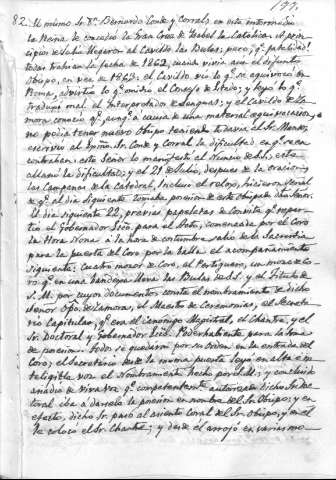 177.
82. Ulmimo Sr. Dn. Bernardo Conde y Corral, en este intermedio
la Reina le concedio la Gran Cruz de Isabel la Catolica. A prin-
cipios de Julio llegaron al Cavildo las Bulas; pero, q.e fatalidad!
todas trahian la fecha de 1862, cuando vivia aun el difunto
Obispo, en vez de 1863: el Cavildo vio lo q.e se equivocó en
Roma, advirtio lo q.e omitió el Consejo de Estado, y leyó lo q.e
tradujo mal el Interpretador de lenguas; y el Cavildo de Za-
mora conocio q.e aunq.e á causa de una material equivocacion,
no podia tener nuevo Obispo teniendo todavia el Sr. Manso,
escrivió al Ylmo. Sr. Conde y Corral la dificultad en q.e se en-
contraban: este Señor lo manifestó al Nuncio de S.S.; este
allanó la dificultad; y el 21 de Julio, despues de la oracion,
las Campanas de la Catedral, incluso el relox, hicieron señal
de q.e al dia siguiente tomaba posesion de este obispado dho. Señor.
El dia siguiente 22, previas papeletas de convite q.e reper-
tio el Gobernador Ecco. para el Acto, comenzada por el Coro
la Hora Nona á la hora de costumbre salió de la Sacristia
para la puerta del Coro por la balla el acompañamiento
siguiente: cuatro mozos de Coro, el Pertiguero, un mozo de Co-
ro q.e en una bandeja llevó las Bulas de S.S. y el Titulo de
S. M. por cuyos documentos, consta el nombramiento de dicho
Señor Obpo. de Zamora, el Maestro de Ceremonias, el Secreta-
rio Capitular, q.e era el Canonigo Magistral, el Chantre, y el
Sr. Doctoral y Gobernador Ecco. Poderhabiente para la toma
de posesion. Todos se quedaron por su orden en la entrada del
Coro; el Secretario desde la misma puerta leyó en alta é in-
teligible voz el Nombramiento hecho por S. M.; y concluido
añadio de viva voz q.e competentemte. autorizado dicho Sr. Doc-
toral iba á darsele la posesion en nombre del Sr. Obispo; y en
efecto, dicho Sr. pasó al asiento coral del Sr. Obispo, y en el
le colocó el Sr. Chantre; y desde él arrojó en varias mo-